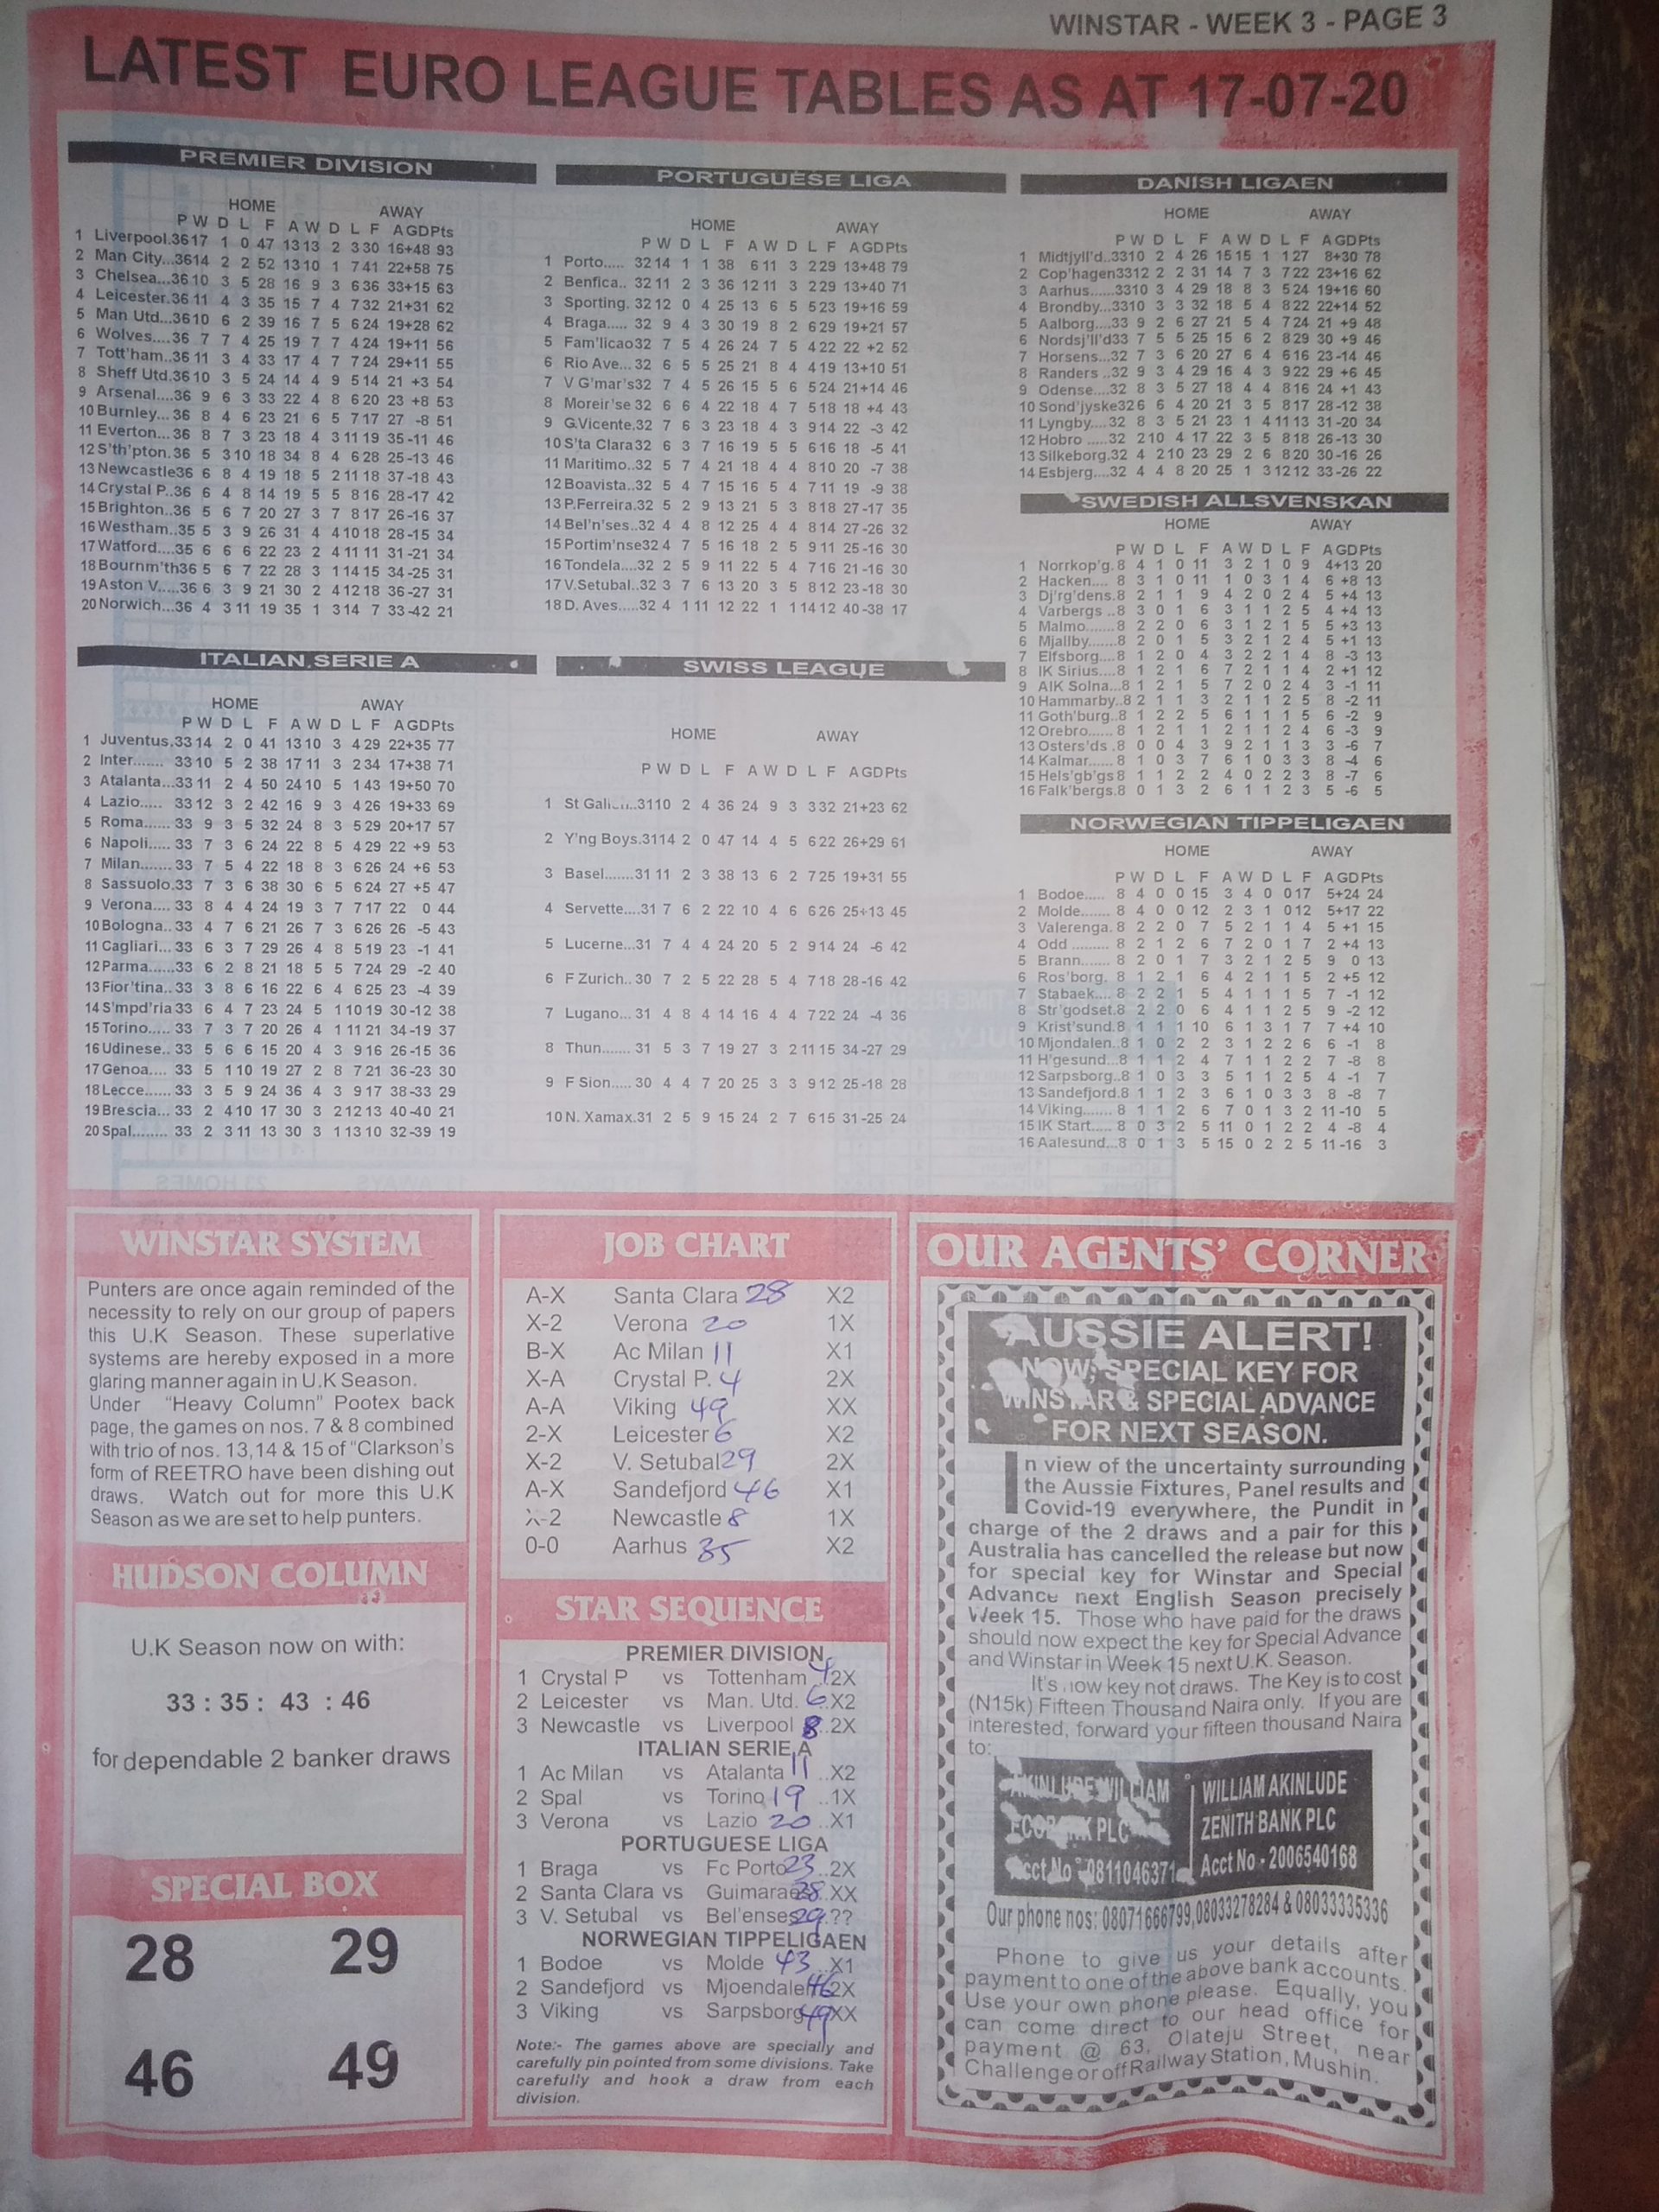 WINSTAR - WEEK 3 - PAGE 3
LATEST EURO LEAGUE TABLES AS AT 17-07-20
PREMIER DIVISION
HOME AWAY
P W D L F A W D L F A GD Pts
1 Liverpool.36 17 1 0 47 13 13 2 3 30 16 +48 93
2 Man City...36 14 2 2 52 13 10 1 7 41 22 +58 75
3 Chelsea...36 10 3 5 28 16 9 3 6 36 33 +15 63
4 Leicester.36 11 4 3 35 15 7 4 7 32 21 +31 62
5 Man Utd...36 10 6 2 39 16 7 5 6 24 19 +28 62
6 Wolves....36 7 7 4 25 19 7 7 4 24 19 +11 56
7 Tott'ham..36 11 3 4 33 17 4 7 7 24 29 +11 55
8 Sheff Utd.36 10 3 5 24 14 4 9 5 14 21 +3 54
9 Arsenal....36 9 6 3 33 22 4 8 6 20 23 +8 53
10 Burnley... 36 8 4 6 23 21 6 5 7 17 27 -8 51
11 Everton... 36 8 7 3 23 18 4 3 11 19 35 -11 46
12 S'th'pton. 36 5 3 10 18 34 8 4 6 28 25 -13 46
13 Newcastle 36 6 8 4 19 18 5 2 11 18 37 -18 43
14 Crystal P..36 6 4 8 14 19 5 5 8 16 28 -17 42
15 Brighton..36 5 6 7 20 27 3 7 8 17 26 -16 37
16 Westham..35 5 3 9 26 31 4 4 10 18 28 -15 34
17 Watford....35 6 6 6 22 23 2 4 11 11 31 -21 34
18 Bournm'th 36 5 6 7 22 28 3 1 14 15 34 -25 31
19 Aston V.....36 6 3 9 21 30 2 4 12 18 36 -27 31
20 Norwich...36 4 3 11 19 35 1 3 14 7 33 -42 21
PORTUGUESE LIGA
HOME AWAY
P W D L F A W D L F A GD Pts
1 Porto..... 32 14 1 1 38 6 11 3 2 29 13 +48 79
2 Benfica.. 32 11 2 3 36 12 11 3 2 29 13 +40 71
3 Sporting. 32 12 0 4 25 13 6 5 5 23 19 +16 59
4 Braga..... 32 9 4 3 30 19 8 2 6 29 19 +21 57
5 Fam'licao 32 7 5 4 26 24 7 5 4 22 22 +2 52
6 Rio Ave... 32 6 5 5 25 21 8 4 4 19 13 +10 51
7 V G'mar's 32 7 4 5 26 15 5 6 5 24 21 +14 46
8 Moreir'se 32 6 6 4 22 18 4 7 5 18 18 +4 43
9 G.Vicente. 32 7 6 3 23 18 4 3 9 14 22 -3 42
10 S'ta Clara 32 6 3 7 16 19 5 5 6 16 18 -5 41
11 Maritimo..32 5 7 4 21 18 4 4 8 10 20 -7 38
12 Boavista..32 5 4 7 15 16 5 4 7 11 19 -9 38
13 P.Ferreira.32 5 2 9 13 21 5 3 8 18 27 -17 35
14 Bel'n'ses..32 4 4 8 12 25 4 4 8 14 27 -26 32
15 Portim'nse 32 4 7 5 16 18 2 5 9 11 25 -16 30
16 Tondela....32 2 5 9 11 22 5 4 7 16 21 -16 30
17 V.Setubal..32 3 7 6 13 20 3 5 8 12 23 -18 30
18 D. Aves.....32 4 1 11 12 22 1 1 14 12 40 -38 17
DANISH LIGAEN
HOME AWAY
P W D L F A W D L F A GD Pts
1 Midtjyll'd..33 10 2 4 26 15 15 1 1 27 8 +30 78
2 Cop'hagen 33 12 2 2 31 14 7 3 7 22 23 +16 62
3 Aarhus......33 10 3 4 29 18 8 3 5 24 19 +16 60
4 Brondby...33 10 3 3 32 18 5 4 8 22 22 +14 52
5 Aalborg....33 9 2 6 27 21 5 4 7 24 21 +9 48
6 Nordsj'll'd 33 7 5 5 25 15 6 2 8 29 30 +9 46
7 Horsens...32 7 3 6 20 27 6 4 6 16 23 -14 46
8 Randers ..32 9 3 4 29 16 4 3 9 22 29 +6 45
9 Odense....32 8 3 5 27 18 4 4 8 16 24 +1 43
10 Sond'jyske 32 6 6 4 20 21 3 5 8 17 28 -12 38
11 Lyngby....32 8 3 5 21 23 1 4 11 13 31 -20 34
12 Hobro .....32 2 10 4 17 22 3 5 8 18 26 -13 30
13 Silkeborg.32 4 2 10 23 29 2 6 8 20 30 -16 26
14 Esbjerg....32 4 4 8 20 25 1 3 12 12 33 -26 22
SWEDISH ALLSVENSKAN
HOME AWAY
P W D L F A W D L F A GD Pts
1 Norrkop'g. 8 4 1 0 11 3 2 1 0 9 4 +13 20
2 Hacken.... 8 3 1 0 11 1 0 3 1 4 6 +8 13
3 Dj'rg'dens.8 2 1 1 9 4 2 0 2 4 5 +4 13
4 Varbergs ..8 3 0 1 6 3 1 1 2 5 4 +4 13
5 Malmo.......8 2 2 0 6 3 1 2 1 5 5 +3 13
6 Mjallby......8 2 0 1 5 3 2 1 2 4 5 +1 13
7 Elfsborg....8 1 2 0 4 3 2 2 1 4 8 -3 13
8 IK Sirius....8 1 2 1 6 7 2 1 1 4 2 +1 12
9 AIK Solna...8 1 2 1 5 7 2 0 2 4 3 -1 11
10 Hammarby..8 2 1 1 3 2 1 1 2 5 8 -2 11
11 Goth'burg..8 1 2 2 5 6 1 1 1 5 6 -2 9
12 Orebro......8 1 2 1 1 2 1 1 2 4 6 -3 9
13 Osters'ds .8 0 0 4 3 9 2 1 1 3 3 -6 7
14 Kalmar......8 1 0 3 7 6 1 0 3 3 8 -4 6
15 Hels'gb'gs 8 1 1 2 2 4 0 2 2 3 8 -7 6
16 Falk'bergs.8 0 1 3 2 6 1 1 2 3 5 -6 5
NORWEGIAN TIPPELIGAEN
HOME AWAY
P W D L F A W D L F A GD Pts
1 Bodoe..... 8 4 0 0 15 3 4 0 0 17 5 +24 24
2 Molde....... 8 4 0 0 12 2 3 1 0 12 5 +17 22
3 Valerenga. 8 2 2 0 7 5 2 1 1 4 5 +1 15
4 Odd ......... 8 2 1 2 6 7 2 0 1 7 2 +4 13
5 Brann....... 8 2 0 1 7 3 2 1 2 5 9 0 13
6 Ros'borg. 8 1 2 1 6 4 2 1 1 5 2 +5 12
7 Stabaek.... 8 2 2 1 5 4 1 1 1 5 7 -1 12
8 Str'godset.8 2 2 0 6 4 1 1 2 5 9 -2 12
9 Krist'sund.8 1 1 1 10 6 1 3 1 7 7 +4 10
10 Mjondalen..8 1 0 2 2 3 1 2 2 6 6 -1 8
11 H'gesund...8 1 1 2 4 7 1 1 2 2 7 -8 8
12 Sarpsborg..8 1 0 3 3 5 1 1 2 5 4 -1 7
13 Sandefjord.8 1 1 2 3 6 1 0 3 3 8 -8 7
14 Viking....... 8 1 1 2 6 7 0 1 3 2 11 -10 5
15 IK Start..... 8 0 3 2 5 11 0 1 2 2 4 -8 4
16 Aalesund...8 0 1 3 5 15 0 2 2 5 11 -16 3
ITALIAN SERIE A
HOME AWAY
P W D L F A W D L F A GD Pts
1 Juventus.33 14 2 0 41 13 10 3 4 29 22 +35 77
2 Inter....... 33 10 5 2 38 17 11 3 2 34 17 +38 71
3 Atalanta...33 11 2 4 50 24 10 5 1 43 19 +50 70
4 Lazio..... 33 12 3 2 42 16 9 3 4 26 19 +33 69
5 Roma...... 33 9 3 5 32 24 8 3 5 29 20 +17 57
6 Napoli..... 33 7 3 6 24 22 8 5 4 29 22 +9 53
7 Milan....... 33 7 5 4 22 18 8 3 6 26 24 +6 53
8 Sassuolo.33 7 3 6 38 30 6 5 6 24 27 +5 47
9 Verona.... 33 8 4 4 24 19 3 7 7 17 22 0 44
10 Bologna.. 33 4 7 6 21 26 7 3 6 26 26 -5 43
11 Cagliari... 33 6 3 7 29 26 4 8 5 19 23 -1 41
12 Parma......33 6 2 8 21 18 5 5 7 24 29 -2 40
13 Fior'tina.. 33 3 8 6 16 22 6 4 6 25 23 -4 39
14 S'mpd'ria 33 6 4 7 23 24 5 1 10 19 30 -12 38
15 Torino..... 33 7 3 7 20 26 4 1 11 21 34 -19 37
16 Udinese.. 33 5 6 6 15 20 4 3 9 16 26 -15 36
17 Genoa.... 33 5 1 10 19 27 2 8 7 21 36 -23 30
18 Lecce..... 33 3 5 9 24 36 4 3 9 17 38 -33 29
19 Brescia... 33 2 4 10 17 30 3 2 12 13 40 -40 21
20 Spal........ 33 2 3 11 13 30 3 1 13 10 32 -39 19
SWISS LEAGUE
HOME AWAY
P W D L F A W D L F A GD Pts
1 St 31 10 2 4 36 24 9 3 3 32 21 +23 62
2 Y'ng Boys.31 14 2 0 47 14 4 5 6 22 26 +29 61
3 Basel.......31 11 2 3 38 13 6 2 7 25 19 +31 55
4 Servette....31 7 6 2 22 10 4 6 6 26 25 +13 45
5 Lucerne...31 7 4 4 24 20 5 2 9 14 24 -6 42
6 F Zurich.. 30 7 2 5 22 28 5 4 7 18 28 -16 42
7 Lugano... 31 4 8 4 14 16 4 4 7 22 24 -4 36
8 Thun....... 31 5 3 7 19 27 3 2 11 15 34 -27 29
9 F Sion..... 30 4 4 7 20 25 3 3 9 12 25 -18 28
10 N. Xamax.31 2 5 9 15 24 2 7 6 15 31 -25 24
WINSTAR SYSTEM
Punters are once again reminded of the
necessity to rely on our group of papers
this U.K Season. These superlative
systems are hereby exposed in a more
glaring manner again in U.K Season.
Under "Heavy Column" Pootex back
page, the games on nos. 7 & 8 combined
with trio of nos. 13,14 & 15 of "Clarkson's
form of REETRO have been dishing out
draws. Watch out for more this U.K
Season as we are set to help punters.
HUDSON COLUMN
U.K Season now on with:
33 : 35 : 43 : 46
for dependable 2 banker draws
SPECIAL BOX
28 29
46 49
JOB CHART
A-X Santa Clara 28 X2
X-2 Verona 20 1X
B-X Ac Milan 11 X1
X-A Crystal P. 4 2X
A-A Viking 49 XX
2-X Leicester 6 X2
X-2 V. Setubal 29 2X
A-X Sandefjord 46 X1
X-2 Newcastle 8 1X
0-0 Aarhus 35 X2
STAR SEQUENCE
PREMIER DIVISION
1 Crystal P vs Tottenham 4 2X
2 Leicester vs Man. Utd. 6 X2
3 Newcastle vs Liverpool 8 ..2X
ITALIAN SERIE A
1 Ac Milan vs Atalanta 11 ..X2
2 Spal vs Torino 19 ..1X
3 Verona vs Lazio 20 ..X1
PORTUGUESE LIGA
1 Braga vs Fc Porto 23 ..2X
2 Santa Clara vs Guimaraes 28 .XX
3 V. Setubal vs Bel'enses 29 .??
NORWEGIAN TIPPELIGAEN
1 Bodoe vs Molde 43 ..X1
2 Sandefjord vs Mjoendalen 46 2X
3 Viking vs Sarpsborg 49 XX
Note:- The games above are specially and
carefully pin pointed from some divisions. Take
carefully and hook a draw from each
division.
OUR AGENTS' CORNER
AUSSIE ALERT!
NOW, SPECIAL KEY FOR
WINSTAR & SPECIAL ADVANCE
FOR NEXT SEASON.
In view of the uncertainty surrounding
the Aussie Fixtures, Panel results and
Covid-19 everywhere, the Pundit in
charge of the 2 draws and a pair for this
Australia has cancelled the release but now
for special key for Winstar and Special
Advance next English Season precisely
Week 15. Those who have paid for the draws
should now expect the key for Special Advance
and Winstar in Week 15 next U.K. Season.
It's now key not draws. The Key is to cost
(N15k) Fifteen Thousand Naira only. If you are
interested, forward your fifteen thousand Naira
to:
AKINLUDE WILLIAM
ECOBANK PLC
Acct No - 0811046371
WILLIAM AKINLUDE
ZENITH BANK PLC
Acct No - 2006540168
Our phone nos: 08071666799,08033278284 & 08033335336
Phone to give us your details after
payment to one of the above bank accounts.
Use your own phone please. Equally, you
can come direct to our head office for
payment @ 63, Olateju Street, near
Challenge or off Railway Station, Mushin.